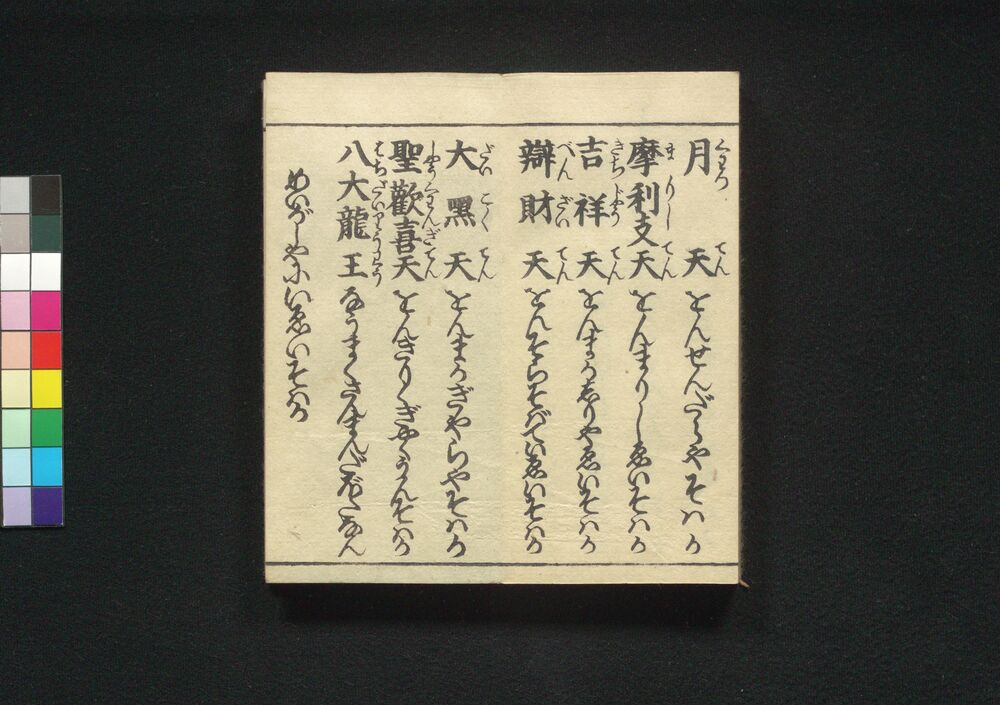 月天 をんせんだらやそハか
摩利支天 をんまりしゑいそハか
吉祥天 をんまかしりやゑいそハか
辯財天 をんそらそばていゑいそハか
大黑天 をんまかぎやらやそハか
聖歡喜天 をんきりくぎやくうんそハか
八大龍王 なうまくさまんだぼだなん
めいがしやにいゑいそハか